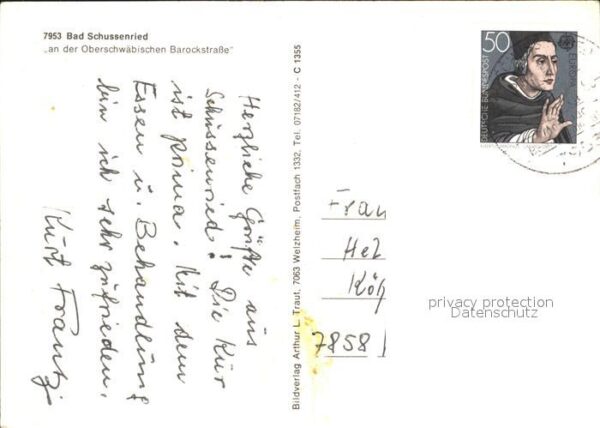 7953 Bad Schussenried
„an der Oberschwäbischen Barockstraße"
Herzliche Grüße aus
Schussenried! Die Kur
ist prima. Mit dem
Essen u. Behandlung
bin ich sehr zufrieden.
Kurt Frantz
Bildverlag Arthur L. Traut, 7063 Welzheim, Postfach 1332, Tel. 07182/412 - C 1355
50
EUROPA
DEUTSCHE BUNDESPOST
Frau
Hel
Kön
7858
privacy protection
Datenschutz